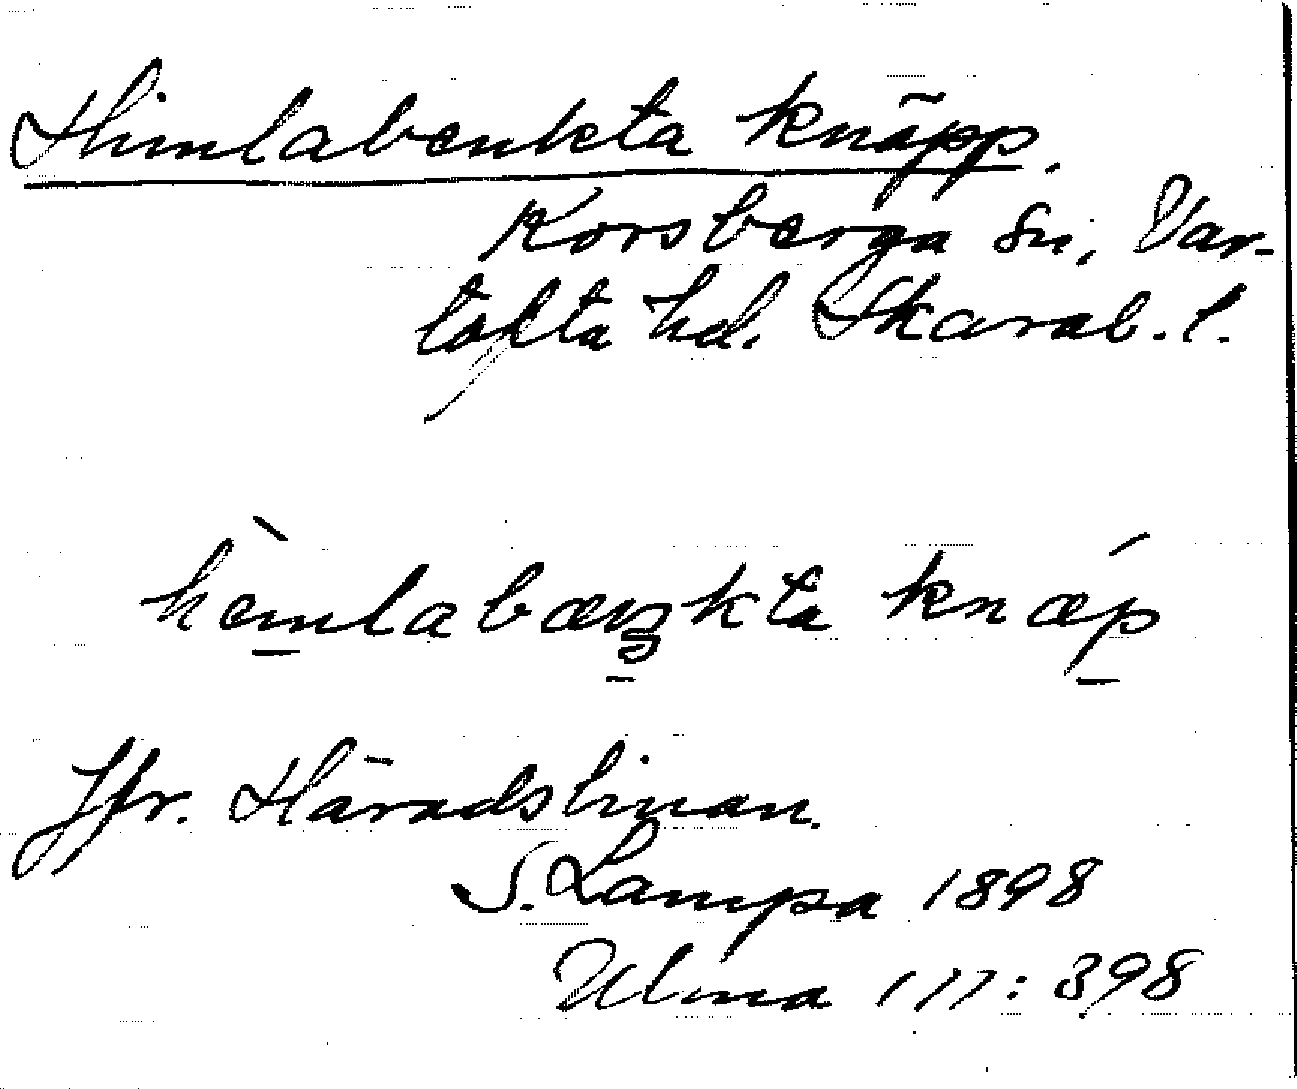 Himlabenkta knäpp.
Korsberga sn, Var-
tofta hd. Skarab. l.
hèmlabæŋkta knǽp
Jfr. Häradslinan.
S. Lampa 1898
Ulma 117: 398